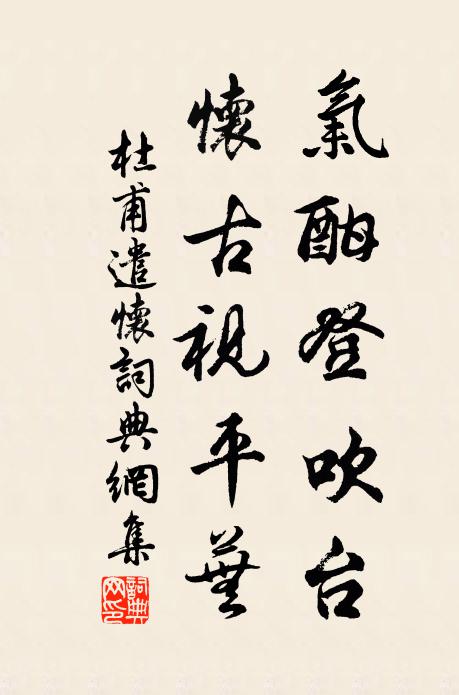 氣酣登吹台
懷古視平蕪
杜甫遣懷詞典網集
詞典网印